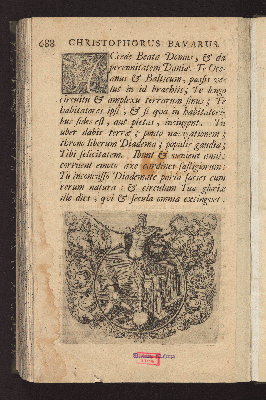 688 CHRISTOPHORUS BAVARUS.
Accede Beata Domus, & da
perennitatem Daniæ. Te Oce-
anus & Balticum, passis ve-
lut in id brachiis; Te longo
circuitu & amplexu terrarum sinus; Te
habitatores ipsi, & si qua in habitatori-
bus fides est, aut pietas, incingunt. Tu
uber dabis terræ; ponto navigationem;
throno liberum Diadema; populis gaudia;
Tibi felicitatem. Ibunt & venient omnia;
corruent emoto axe cardines fastigiorum:
Tu inconcusso Diademate paria facies cum
rerum natura; & circulum Tua gloria
illa dies; qui & secula omnia extinguet.